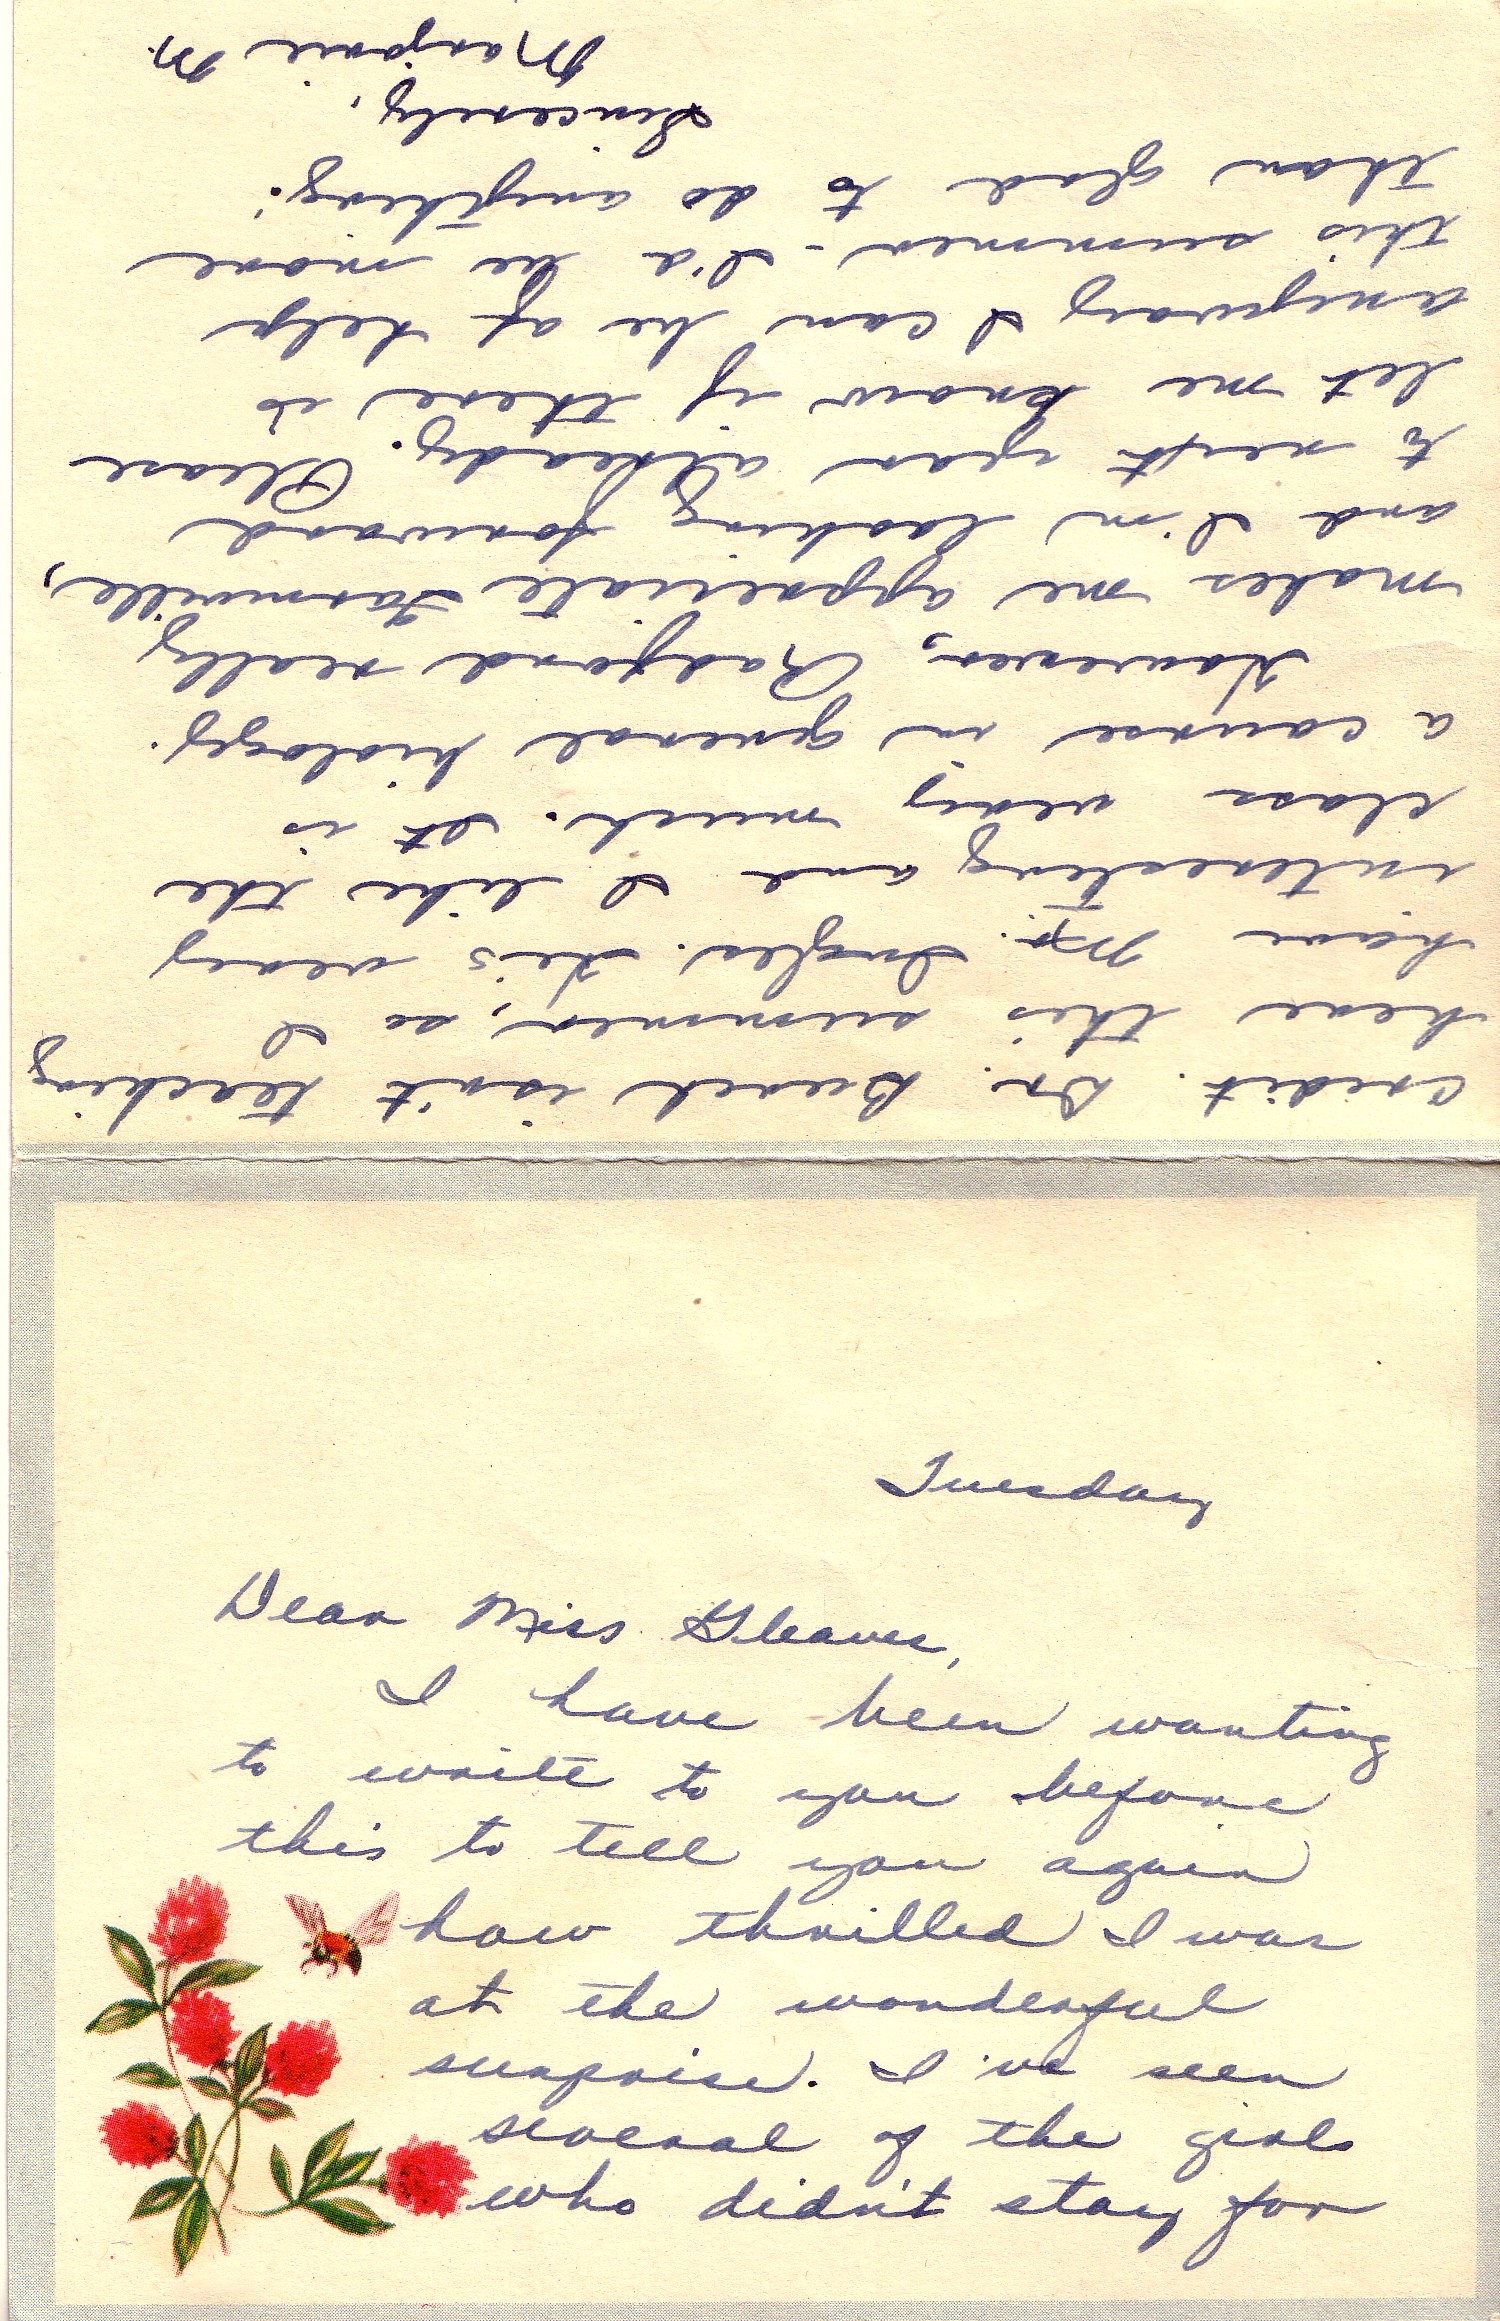 Tuesday
Dear Miss Gleaves,
I have been wanting
to write to you before
this to tell you again
how thrilled I was
at the wonderful
surprise. I've seen
several of the girls
who didn't stay for
credit. Dr. Burch isn't teaching
here this summer, so I
have Mr. Ingles. He's very
interesting and I like the
class very much. It is
a course in general biology.
However, Radford really
makes me appreciate Farmville,
and I'm looking forward
to next year already. Please
let me know if there is
anyway I can be of help
this summer - I'd be more
than glad to do anything!
Sincerely,
Marjorie M.